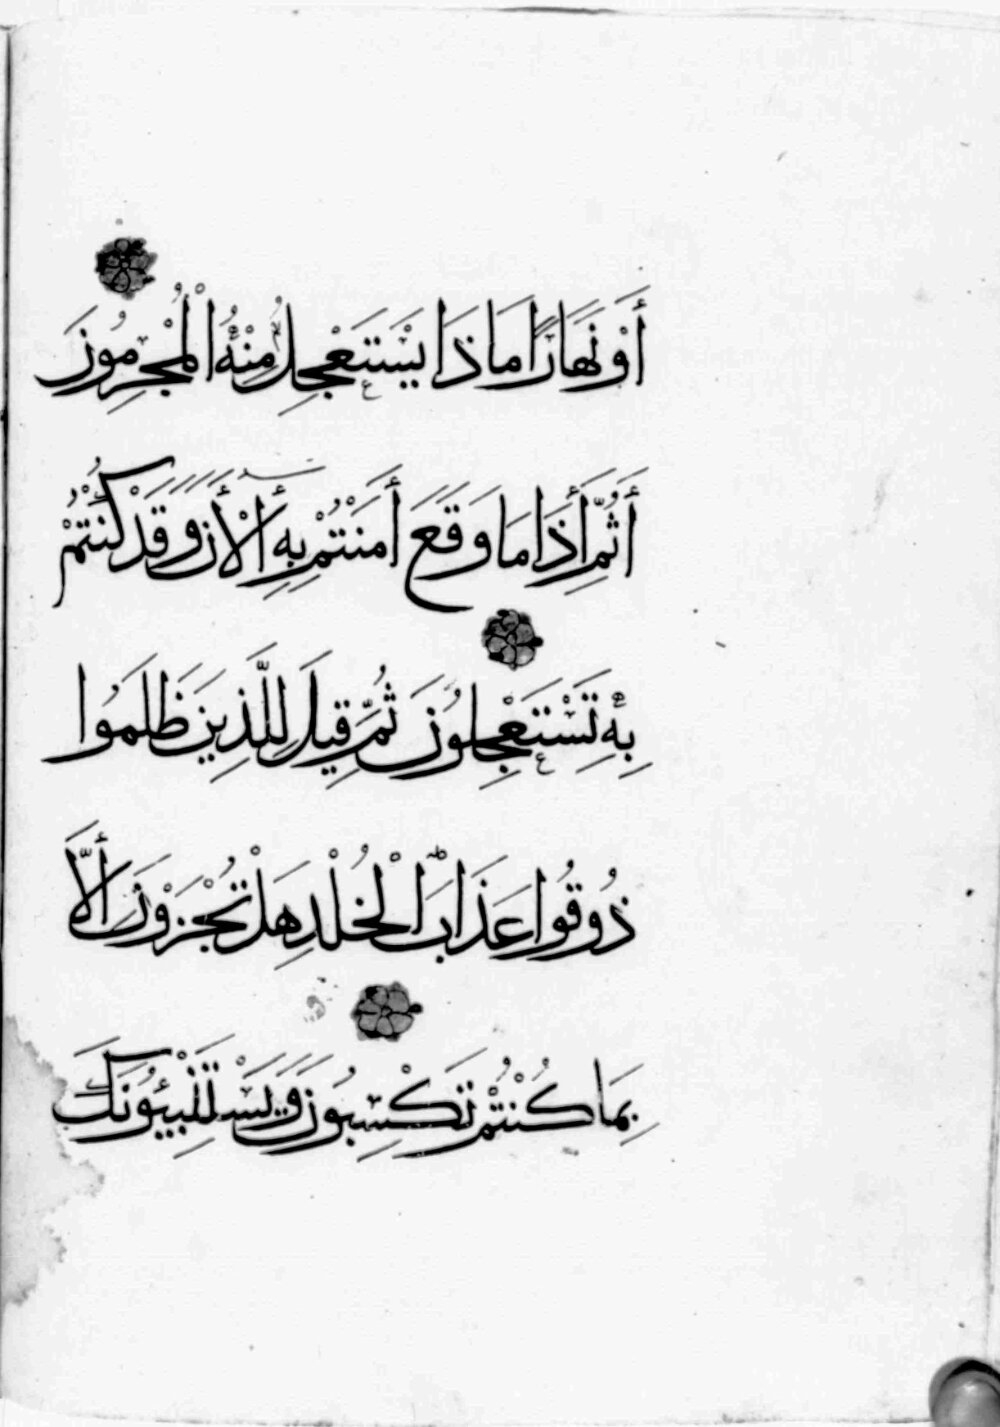 أَوْ نَهَارًا مَاذَا يَسْتَعْجِلُ مِنْهُ الْمُجْرِمُونَ
أَثُمَّ أَذَا مَا وَقَعَ أَمَنْتُمْ بِهِ أَلْأَنَ وَقَدْ كُنْتُمْ
بِهِ تَسْتَعْجِلُونَ ثُمَّ قِيلَ لِلَّذِينَ ظَلَمُوا
ذُوقُوا عَذَابَ الْخُلْدِ هَلْ تُجْزَوْنَ أَلَّا
بِمَا كُنْتُمْ تَكْسِبُونَ وَيَسْتَنْبِئُونَكَ